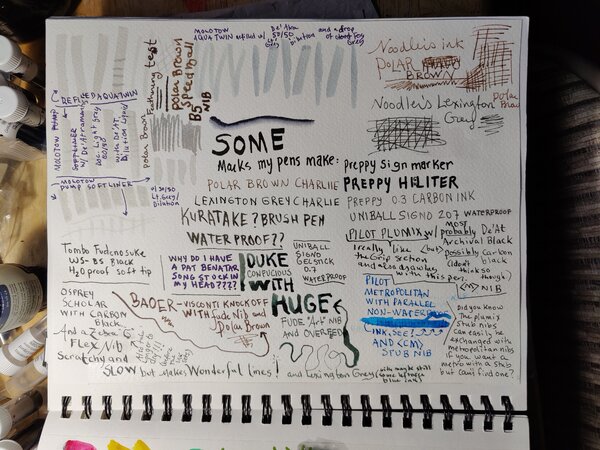 MOLOTOW
AQUATWIN refilled w/ De'Atra
50/50
Dilution
and a drop
of
Grey
Noodler's ink
POLAR
BROWN
Polar
Noodler's Lexington
Gray
REFILLED AQUATWIN
MOLOTOW PUMP
SOFTLINER
w/ De'Atramentis
Doc Light Grey
50/50
with De'At
Dilution Liquid
MOLOTOW
PUMP SOFTLINER
Feathering test
polar Brown
polar Brown
Speed Ball
B5
NIB
w/ 50/50
Lt. Grey/
Dilution
SOME
Marks my pens make:
preppy sign marker
POLAR BROWN CHARLIE
PREPPY HILITER
LEXINGTON GREY CHARLIE
PREPPY 0.3 CARBON INK
KURATAKE? BRUSH PEN
UNIBALL SIGNO 207 WATERPROOF
WATERPROOF??
PILOT PLUMIX w/ MOST
probably De'At
Archival Black
possibly carbon
black
(I don't
think so
though)
I really like (but)
the Grip section
and also doodles
with this pen.
NIB
Tombo Fudenosuke
WS-BS Black
H2O proof soft tip
WHY DO I HAVE
A PAT BENATAR
SONG STUCK IN
MY HEAD????
DUKE
CONFUCIOUS
WITH
HUGE
FUDE "Art" NIB
AND OVERFEED
UNIBALL
SIGNO
GELSTICK
0.7
WATERPROOF
PILOT
METROPOLITAN
WITH PARALLEL
NON-WATER
INK SEE!
AND <M>
STUB NIB
Did you know
The plumix
stub nibs
Can easily be
exchanged with
metropolitan nibs
if you want a
metro with a stub
but can't find one?
OSPREY
SCHOLAR
WITH CARBON
Black
And a Zebra G
FLEX Nib
Scratchy and
SLOW but makes Wonderful lines!
BAOER - VISCONTI KNOCK OFF
WITH fude Nib and
Polar Brown
and Lexington Grey
(with maybe still
some
blue ink)